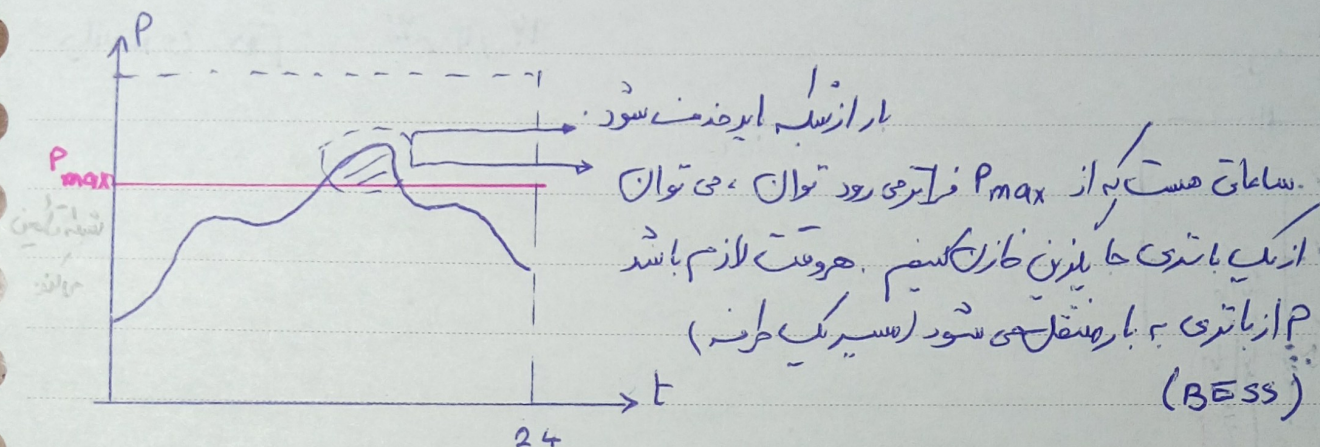 P
بار از شبکه باید حذف شود.
Pmax
ساعاتی هست که از Pmax فراتر می رود توان، می توان
از یک باتری جایگزین خازن کنیم. هر وقت لازم باشد
P از باتری به بار منتقل می شود (مسیر یک طرفه)
(BESS)
t
24